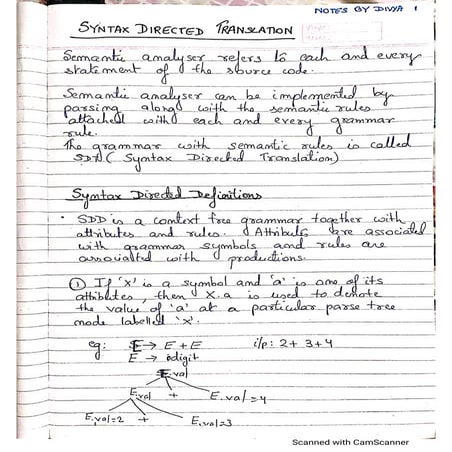 NOTES BY DIVYA 1
SYNTAX DIRECTED TRANSLATION
Semantic analyser refers to each and every
statement of the source code.
Semantic analyser can be implemented by
parsing along with the semantic rules
attached with each and every grammar
rule.
The grammar with semantic rules is called
SDT ( Syntax Directed Translation)
Syntax Directed Definitions
• SDD is a context free grammar together with
attributes and rules. Attributes are associated
with grammar symbols and rules are
associated with productions.
① If 'X' is a symbol and 'a' is one of its
attributes, then X.a is used to denote
the value of 'a' at a particular parse tree
node labelled 'X'.
eg: E → E + E i/p: 2+3+4
E → digit
E.val
E.val + E.val=4
E.val=2 + E.val=3
Scanned with CamScanner